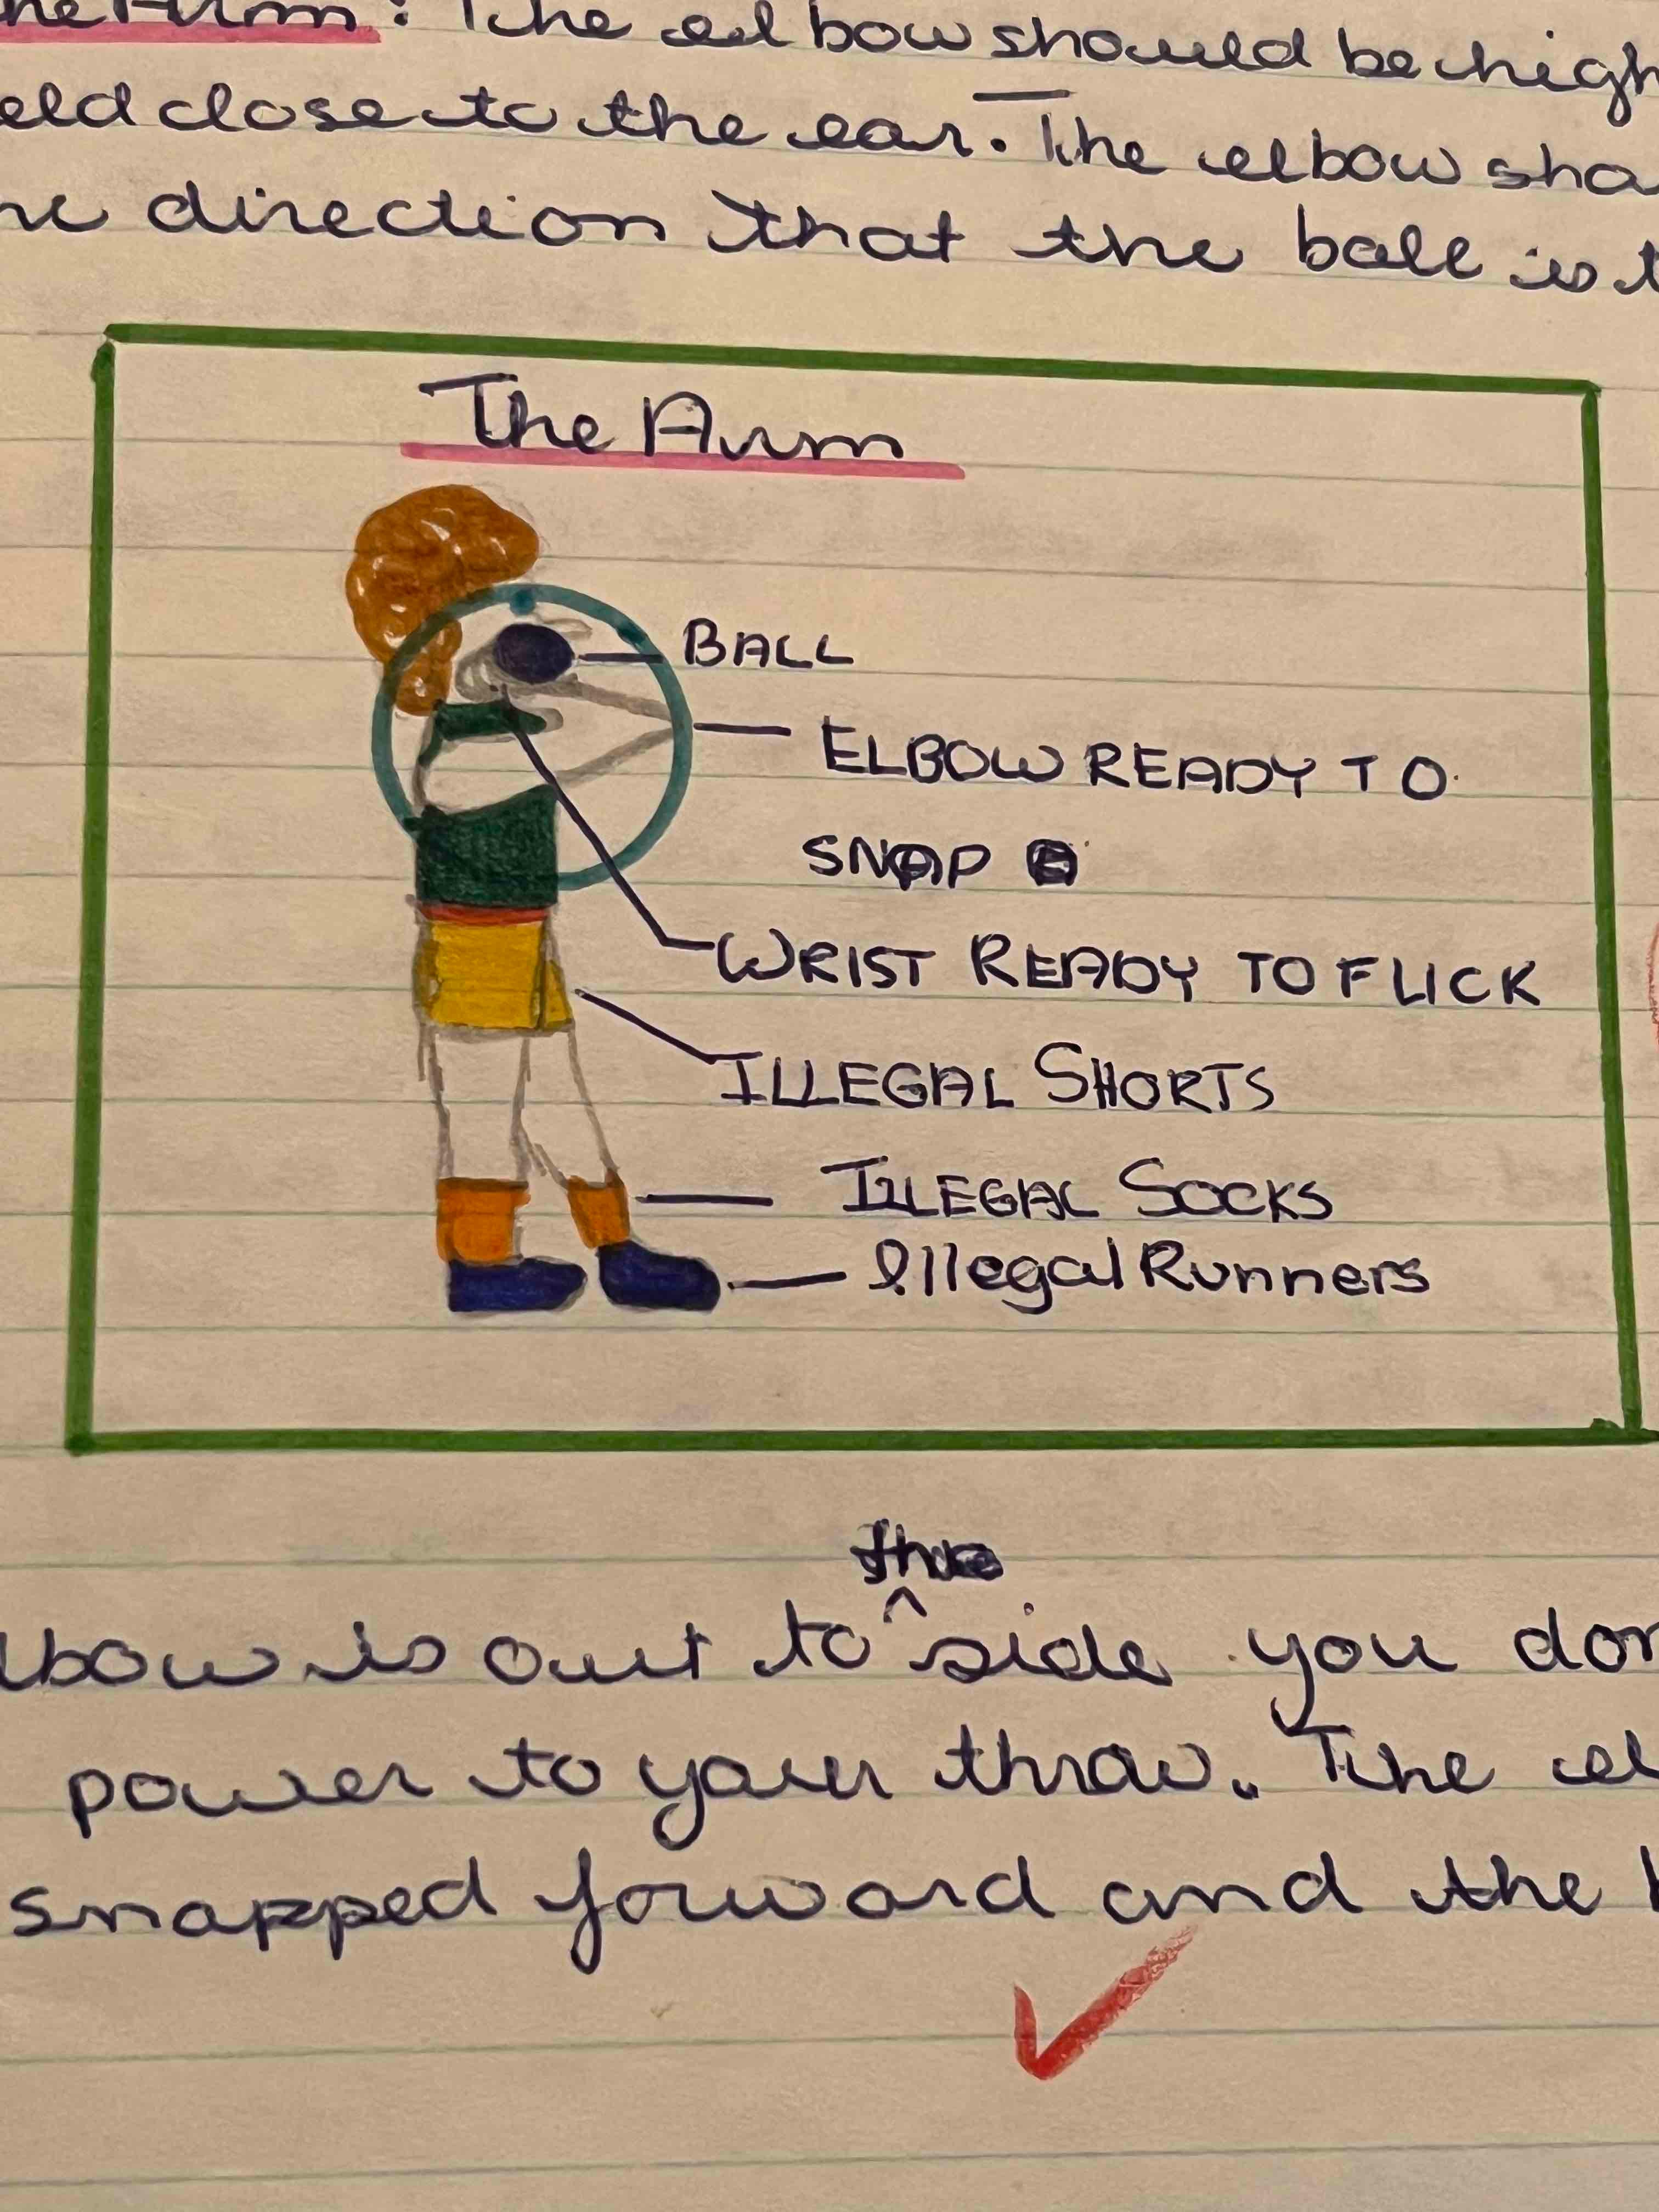 he Arm: The elbow should be high
eld close to the ear. The elbow sho
he direction that the ball is t
The Arm
BALL
ELBOW READY TO
SNAP
WRIST READY TO FLICK
ILLEGAL SHORTS
ILLEGAL SOCKS
Illegal Runners
the
lbow is out to ^ side you don
power to your throw. The el
snapped forward and the